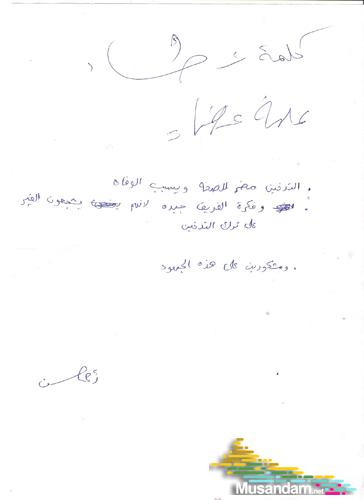 كلمة
. التدخين مضر للصحة ويسبب الوفاة
. وفكرة الفريق جيده لانهم يشجعون الغير
على ترك التدخين
. ومشكورين على هذه الجهود
Musandam.net